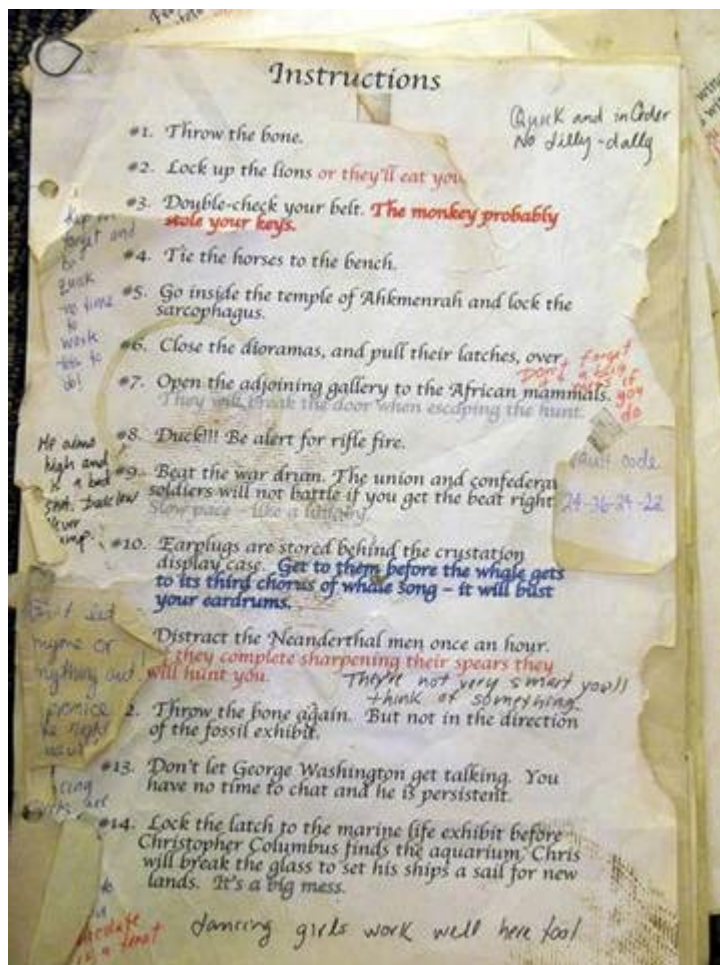 Instructions
Quick and in Order
No dilly-dally
#1. Throw the bone.
#2. Lock up the lions or they'll eat you
#3. Double-check your belt. The monkey probably
stole your keys.
forget and
quick
no time
to
work
to
do!
#4. Tie the horses to the bench.
#5. Go inside the temple of Ahkmenrah and lock the
sarcophagus.
#6. Close the dioramas, and pull their latches, over.
Don't forget
a big
if
you
do
#7. Open the adjoining gallery to the African mammals.
They will break the door when escaping the hunt.
#8. Duck!!! Be alert for rifle fire.
He aims
high and
is a bad
shot. Duck low
never
#9. Beat the war drum. The union and confedera
soldiers will not battle if you get the beat right
Slow pace - like a lullaby.
code
24-36-24-22
#10. Earplugs are stored behind the crustation
display case. Get to them before the whale gets
to its third chorus of whale song – it will bust
your eardrums.
Distract the Neanderthal men once an hour.
they complete sharpening their spears they
will hunt you.
They're not very smart you'll
think of something.
2. Throw the bone again. But not in the direction
of the fossil exhibit.
#13. Don't let George Washington get talking. You
have no time to chat and he is persistent.
#14. Lock the latch to the marine life exhibit before
Christopher Columbus finds the aquarium. Chris
will break the glass to set his ships a sail for new
lands. It's a big mess.
dancing girls work well here too!